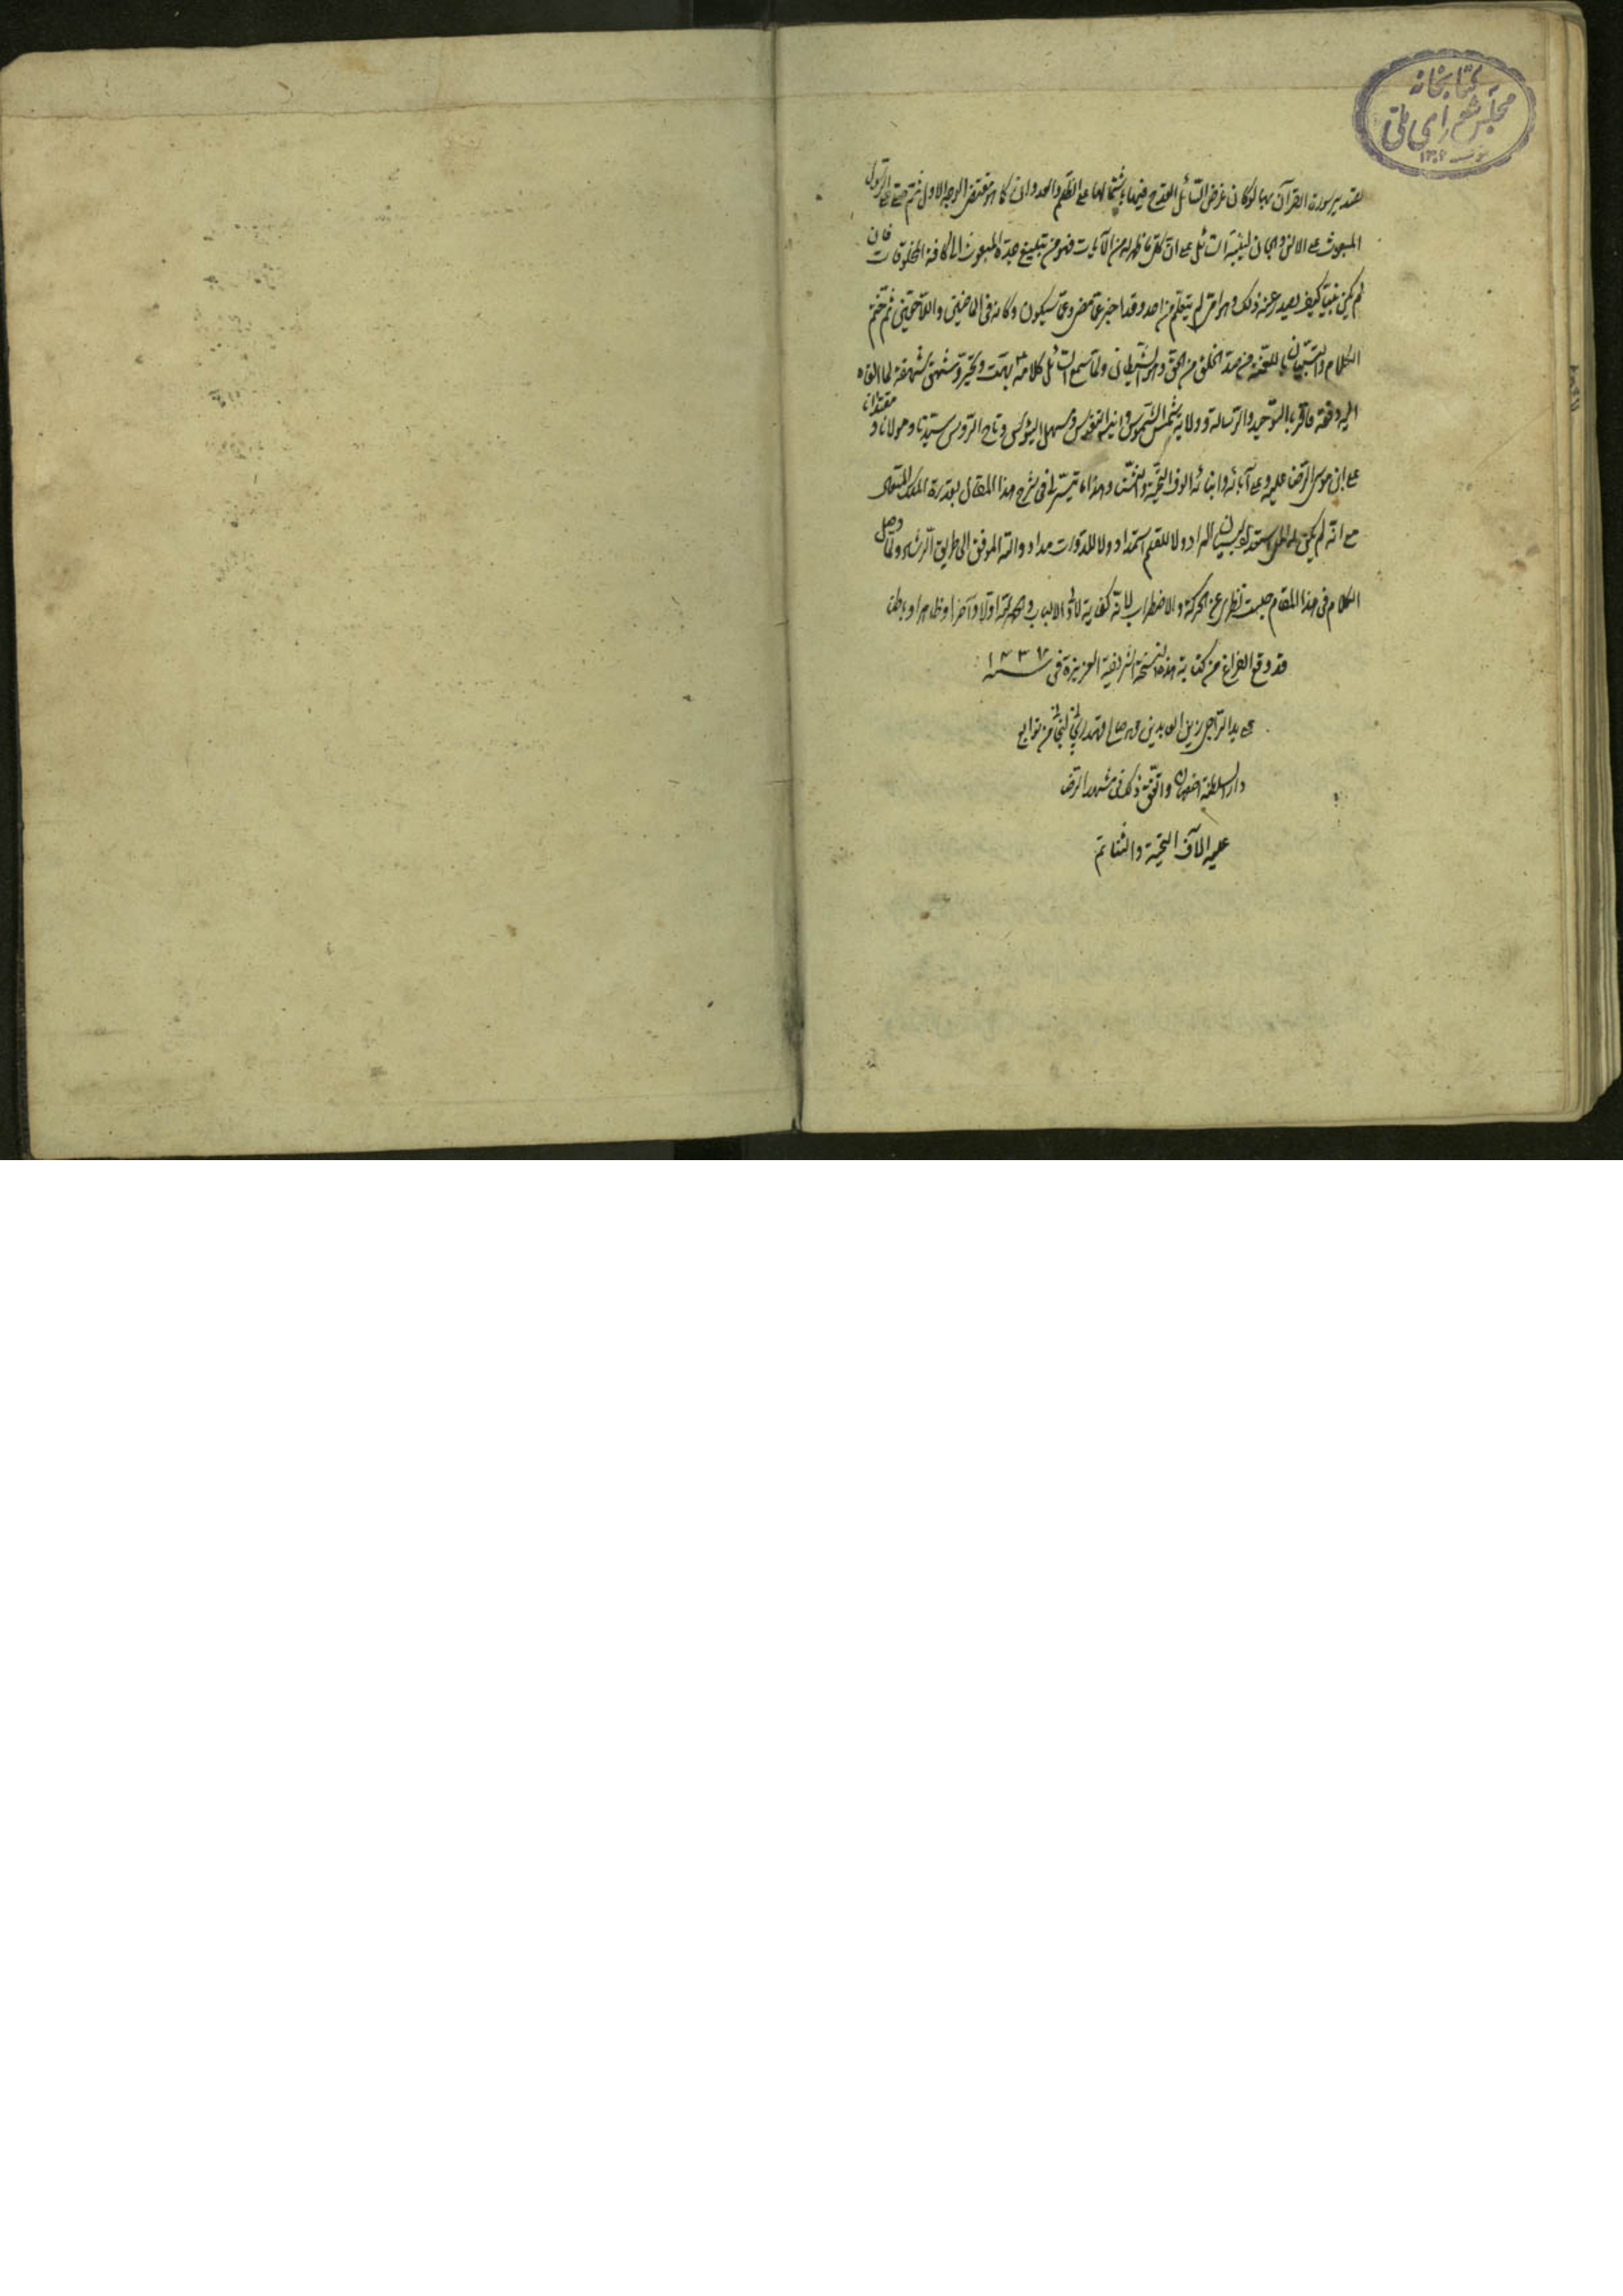 كتابخانه
مجلس شورای ملی
بتقدير سورت القرآن بها لو كان غرض السائل القدح فيها باشتمالها على الظلم والعدوان كما هو مقتضى الوجه الاول ثم صلى على الرسول
المبعوث على الانس والجان لينبه السائل على ان كل ما ظهر له من الآيات فهو من تبليغ عبده المبعوث الى كافة المخلوقات فان
لم يكن نبيا كيف يصدر عنه ذلك وهو امى لم يتعلم من احد وقد اخبر عما مضى وعما سيكون وكان فى الماضيين واللاحقين ثم ختم
الكلام والتبيان باللعنة من صد الخلق من الحق وهو الشيطان ولما سمع السائل كلامه بهت وتحير وشهق شهقة لما القاه
اليه دفعة فاقر بالتوحيد والرسالة وولاية شمس الشموس وانيس النفوس وتاج الرؤس سيدنا ومولانا و مقتدانا
على ابن موسى الرضا عليه وعلى آبائه وابنائه الوف التحية والثنا وهذا ما تيسر لى فى شرح هذا المقال بقدرة الملك المتعال
مع انه لم يكن لبيان المراد ولا للقلم استمداد ولا للدوات مداد والله الموفق الى طريق الرشاد ولما وصل
الكلام فى هذا المقام حبست نظرى عن الحركة والاضطراب لانه كفاية لاولى الالباب والحمد لله اولا وآخرا وظاهرا وباطنا
قد وقع الفراغ من كتابة هذه النسخة الشريفة العزيزة فى سنه
على يد الراجى زين العابدين من توابع
دار السلطنة اصفهان واتفق ذلك فى مشهد الرضا
عليه آلاف التحية والثنا تم